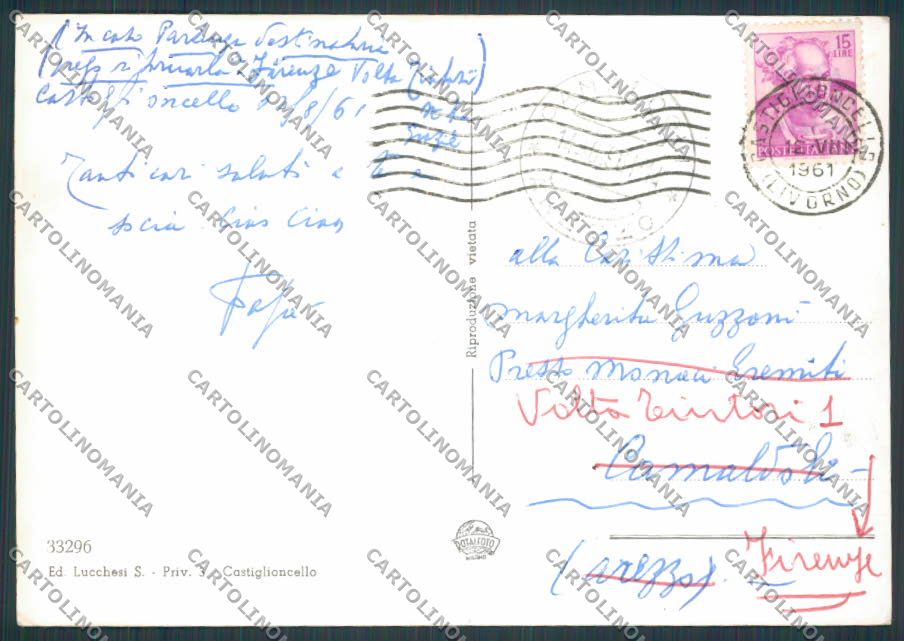 (In caso Partenza destinataria
(pregasi rinviarla Firenze Volta Tintori)
Castiglioncello 8/61
Tanti cari saluti e
Ciao Ciao
Papà
15
LIRE
POSTE ITALIANE
CASTIGLIONCELLO
1961
(LIVORNO)
Riproduzione vietata
alla Carissima
Margherita Guzzoni
Presso Monaci Eremiti
Volta Tintori 1
Camaldoli
(Arezzo) Firenze
33296
Ed. Lucchesi S. - Priv. 3 - Castiglioncello
CARTOLINOMANIA